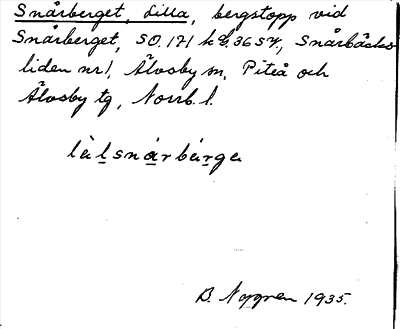 Snårberget, Lilla, bergstopp vid
Snårberget, SO. 171 h 36 57, Snårbäcks-
liden nr 1, Älvsby sn, Piteå och
Älvsby tg, Norrb. l.
là̱lsnårbärga
B. Nygren 1935.